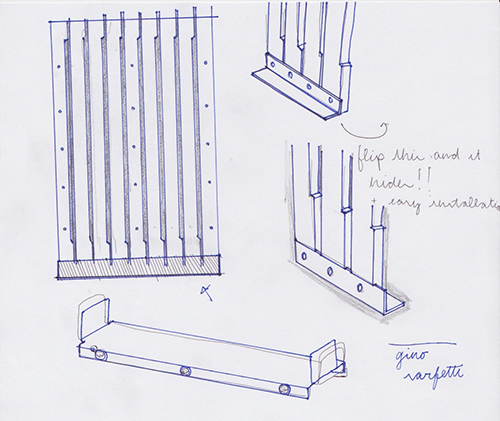 flip this and it
hides!!
+ easy installation
gino
sarfetti